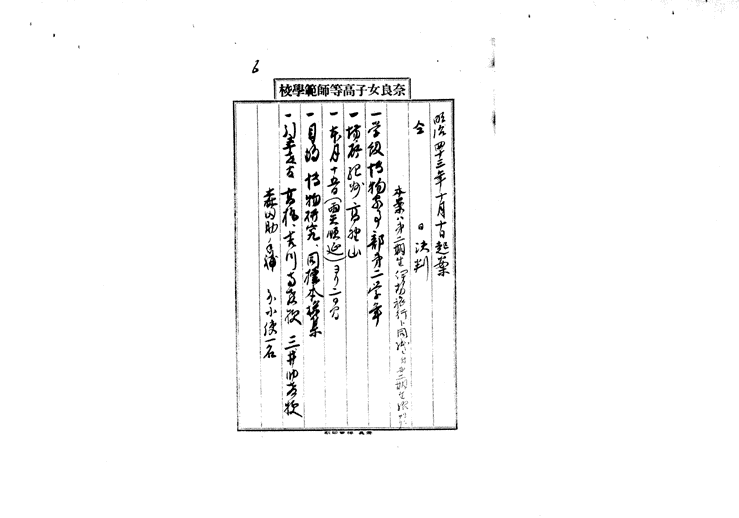 6
奈良女子高等師範學校
明治四十三年十月十日起案
仝 日決判
本案ハ第二期生修学旅行ト同
一学級 博物家事部第二学年
一場所 紀州高野山
一本月十五日(雨天順延)ヨリ二日間
一目的 博物研究、同標本採集
一引率者 高橋、吉川両教授 三井助教授
森田助手補 外小使一名